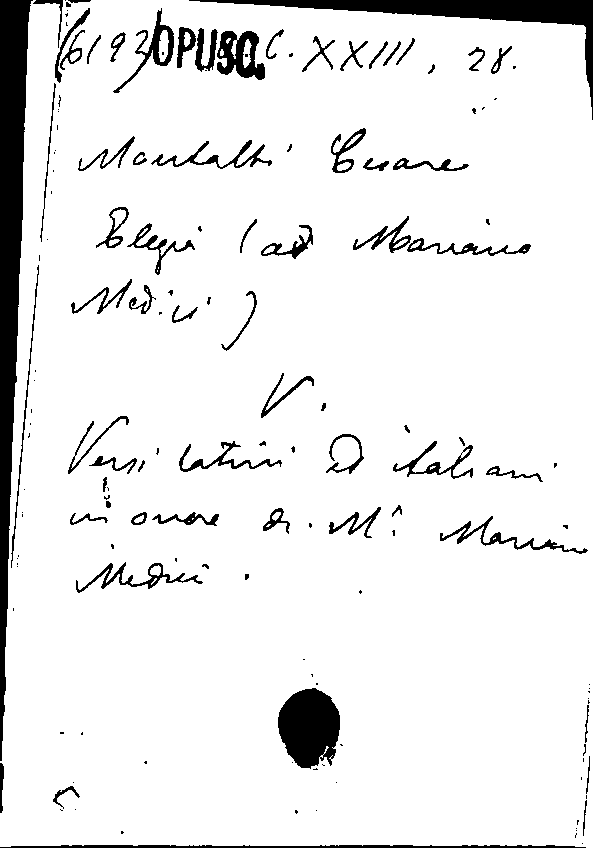 (6193) OPUSC. C. XXIII, 28.
Montalti Cesare
Elegia (ad Mariano
Medici)
V.
Versi latini ed italiani
in onore di M. Mariano
Medici.